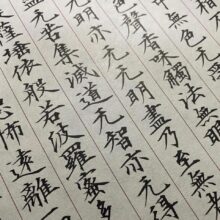 中無色无
聲香味觸法無
无明亦无无明盡乃至無
无苦集滅道无智亦无得
薩埵依般若波羅蜜多
恐怖遠離一